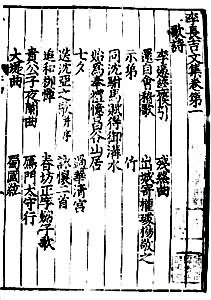 李長吉文集卷第一
歌詩
李憑箜篌引 殘絲曲
還自會稽歌 出城寄權璩楊敬之
示弟 竹
同沈駙馬賦得御溝水
始為奉禮憶昌谷山居
七夕 過華清宮
送沈亞之歌并序 詠懷二首
追和柳惲 春坊正字劍子歌
貴公子夜闌曲 鴈門太守行
大堤曲 蜀國絃